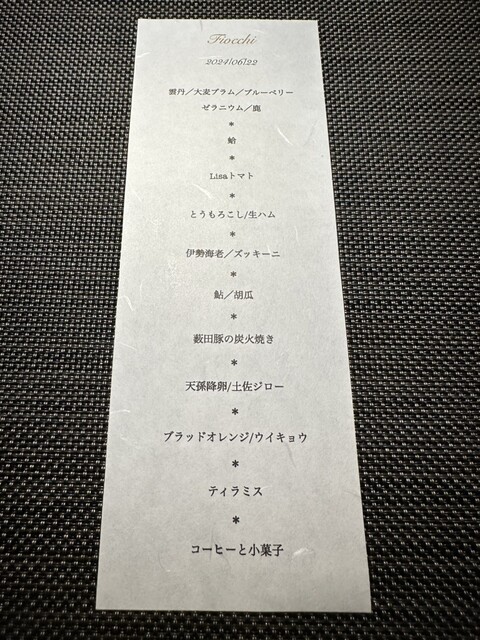 Fiocchi
2024/06/22
雲丹／大麦プラム／ブルーベリー
ゼラニウム／鹿
*
蛤
*
Lisaトマト
*
とうもろこし/生ハム
*
伊勢海老／ズッキーニ
*
鮎／胡瓜
*
薮田豚の炭火焼き
*
天孫降卵/土佐ジロー
*
ブラッドオレンジ/ウイキョウ
*
ティラミス
*
コーヒーと小菓子